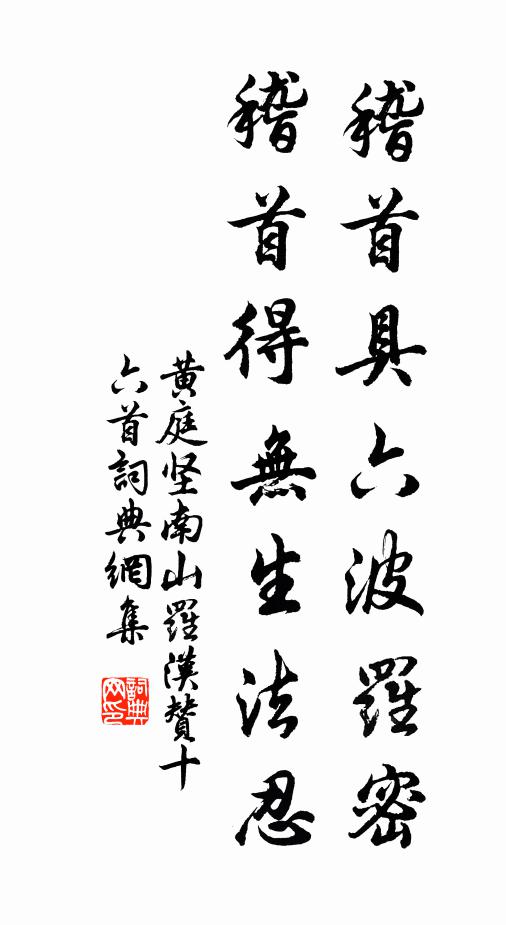 稽首具六波羅密
稽首得無生法忍
黄庭坚南山羅漢贊十
六首詞典網集
詞典
网印